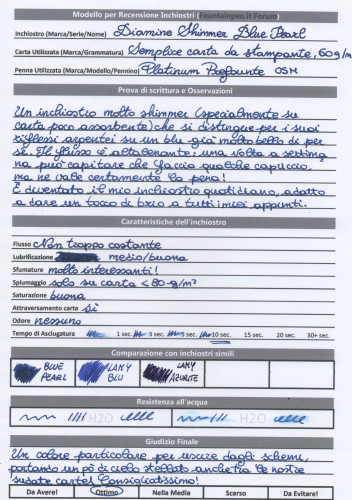 Modello per Recensione Inchiostri (Fountainpen.it Forum)
Inchiostro (Marca/Serie/Nome) Diamine Shimmer Blue Pearl
Carta Utilizzata (Marca/Grammatura) Semplice carta da stampante, 60g/m
Penna Utilizzata (Marca/Modello/Pennino) Platinum Prefounte 05M
Prova di scrittura e Osservazioni
Un inchiostro molto shimmer (specialmente su
carta poco assorbente) che si distingue per i suoi
riflessi argentei su un blu già molto bello di per
sé. Il flusso è altalenante: una volta a settima
na può capitare che faccia qualche capriccio
ma ne vale certamente la pena!
È diventato il mio inchiostro quotidiano, adatto
a dare un tocco di brio a tutti i miei appunti.
Caratteristiche dell'inchiostro
Flusso Non troppo costante
Lubrificazione medio/buona
Sfumature molto interessanti!
Spiumaggio solo su carta < 80 g/m²
Saturazione buona
Attraversamento carta sì
Odore nessuno
Tempo di Asciugatura 1 sec. 3 sec. 5 sec. 10 sec. 15 sec. 20 sec. 30+ sec.
Comparazione con inchiostri simili
BLUE PEARL LAMY BLU LAMY AZURITE
Resistenza all'acqua
H2O H2O
Giudizio Finale
Un colore particolare per uscire dagli schemi,
portando un pò di cielo stellato anche tra le nostre
sudate carte! Consigliatissimo!
Da Avere! Ottimo Nella Media Scarso Da Evitare!